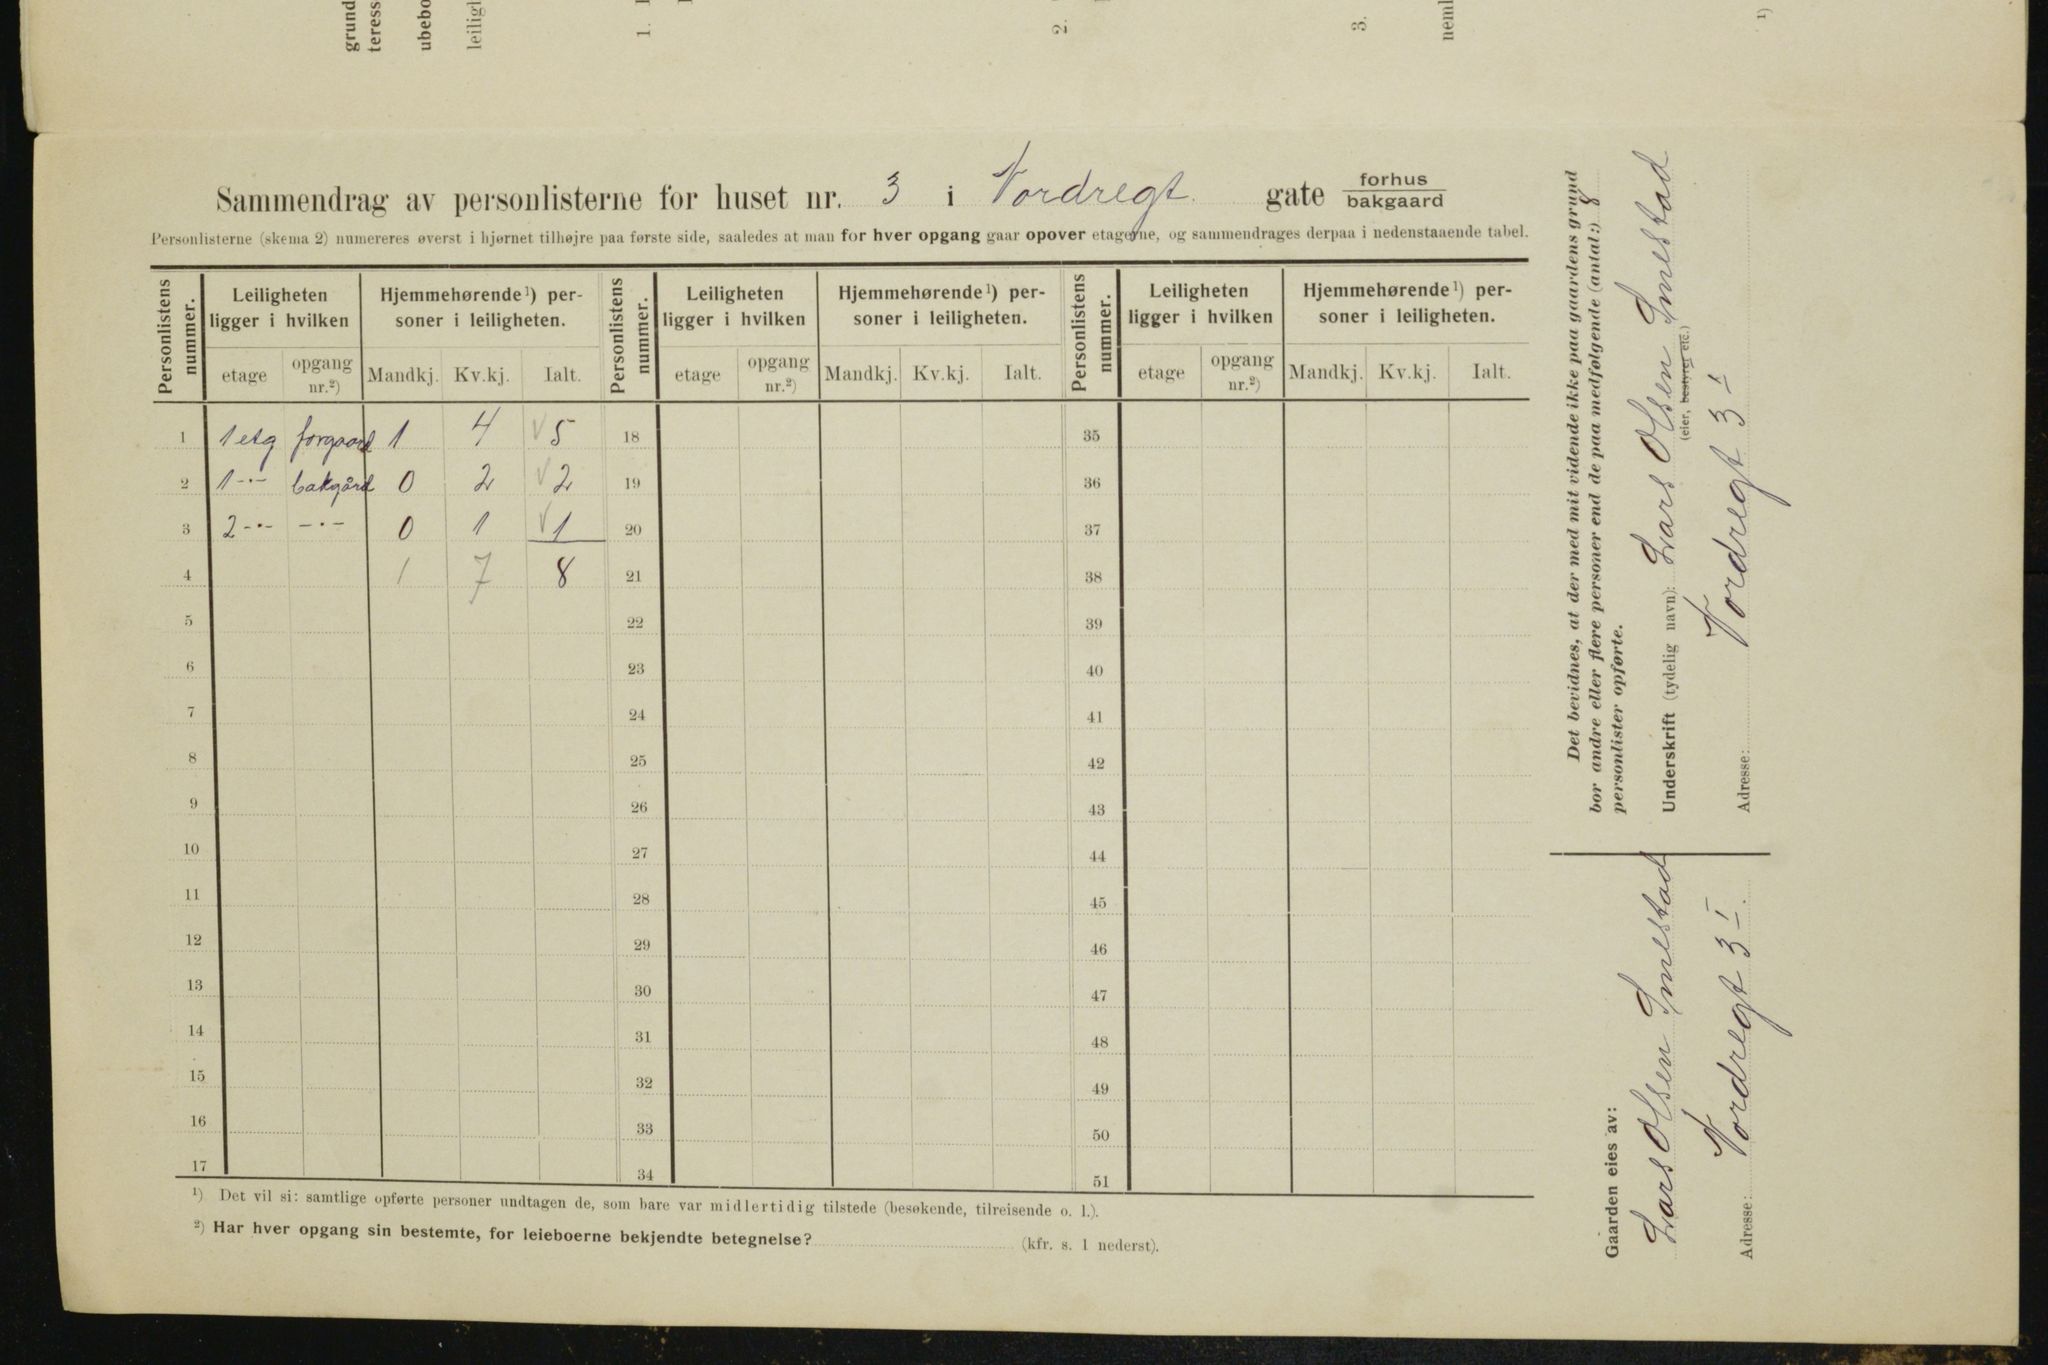 grund
teress
ubebo
leiligh
1.
2.
3.
neml
1)
Sammendrag av personlisterne for huset nr. 3 i Nordregt. gate forhus
bakgaard
Personlisterne (skema 2) numereres øverst i hjørnet tilhøjre paa første side, saaledes at man for hver opgang gaar opover etagerne, og sammendrages derpaa i nedenstaaende tabel.
Personlistens nummer. Leiligheten ligger i hvilken Hjemmehørende 1) personer i leiligheten. Personlistens nummer. Leiligheten ligger i hvilken Hjemmehørende 1) personer i leiligheten. Personlistens nummer. Leiligheten ligger i hvilken Hjemmehørende 1) personer i leiligheten.
etage opgang nr.2) Mandkj. Kv.kj. Ialt. etage opgang nr.2) Mandkj. Kv.kj. Ialt. etage opgang nr.2) Mandkj. Kv.kj. Ialt.
1 1 etg forgaard 1 4 √ 5 18 35
2 1 -"- bakgård 0 2 √ 2 19 36
3 2 -"- -"- 0 1 √ 1 20 37
4 1 7 8 21 38
5 22 39
6 23 40
7 24 41
8 25 42
9 26 43
10 27 44
11 28 45
12 29 46
13 30 47
14 31 48
15 32 49
16 33 50
17 34 51
1) Det vil si: samtlige opførte personer undtagen de, som bare var midlertidig tilstede (besøkende, tilreisende o. l.).
2) Har hver opgang sin bestemte, for leieboerne bekjendte betegnelse? (kfr. s. 1 nederst).
Det bevidnes, at der med mit vidende ikke paa gaardens grund
bor andre eller flere personer end de paa medfølgende (antal:) 8
personlister opførte.
Underskrift (tydelig navn): Lars Olsen Smestad
(eier, bestyrer etc.)
Adresse: Nordregt 3 I
Gaarden eies av:
Lars Olsen Smestad
Adresse: Nordregt 3 I.